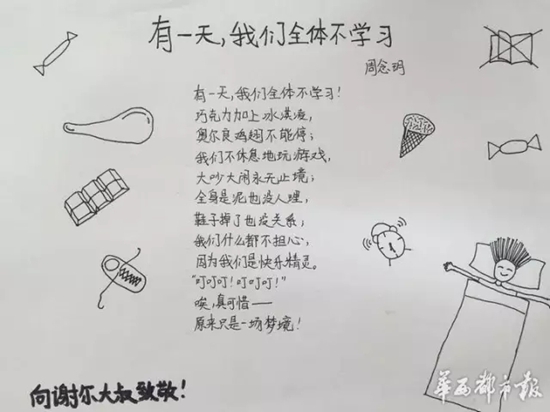 有一天,我们全体不学习
周念玥
有一天,我们全体不学习!
巧克力加上冰淇凌,
奥尔良鸡翅不能停;
我们不休息地玩游戏,
大吵大闹永无止境;
全身是泥也没人理,
鞋子掉了也没关系,
我们什么都不担心,
因为我们是快乐精灵。
“叮叮叮!叮叮叮!”
唉,真可惜——
原来只是一场梦境!
向谢尔大叔致敬!
华西都市报